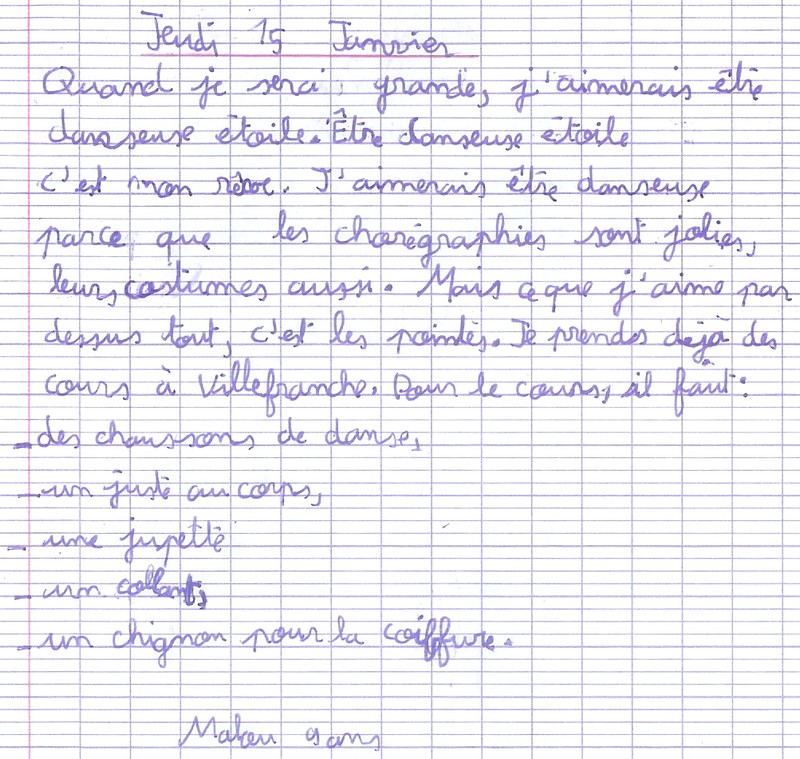 Jeudi 15 Janvier
Quand je serai grande, j'aimerais être
danseuse étoile. Être danseuse étoile
c'est mon rêve. J'aimerais être danseuse
parce que les charégraphies sont jolies,
leurs costumes aussi. Mais ce que j'aime par
dessus tout, c'est les pointes. Je prends dejà des
cours à Villefranche. Pour le cours, il faut :
- des chaussons de danse,
- un juste au corps,
- une jupette
- un collant,
- un chignon pour la coiffure.
9 ans